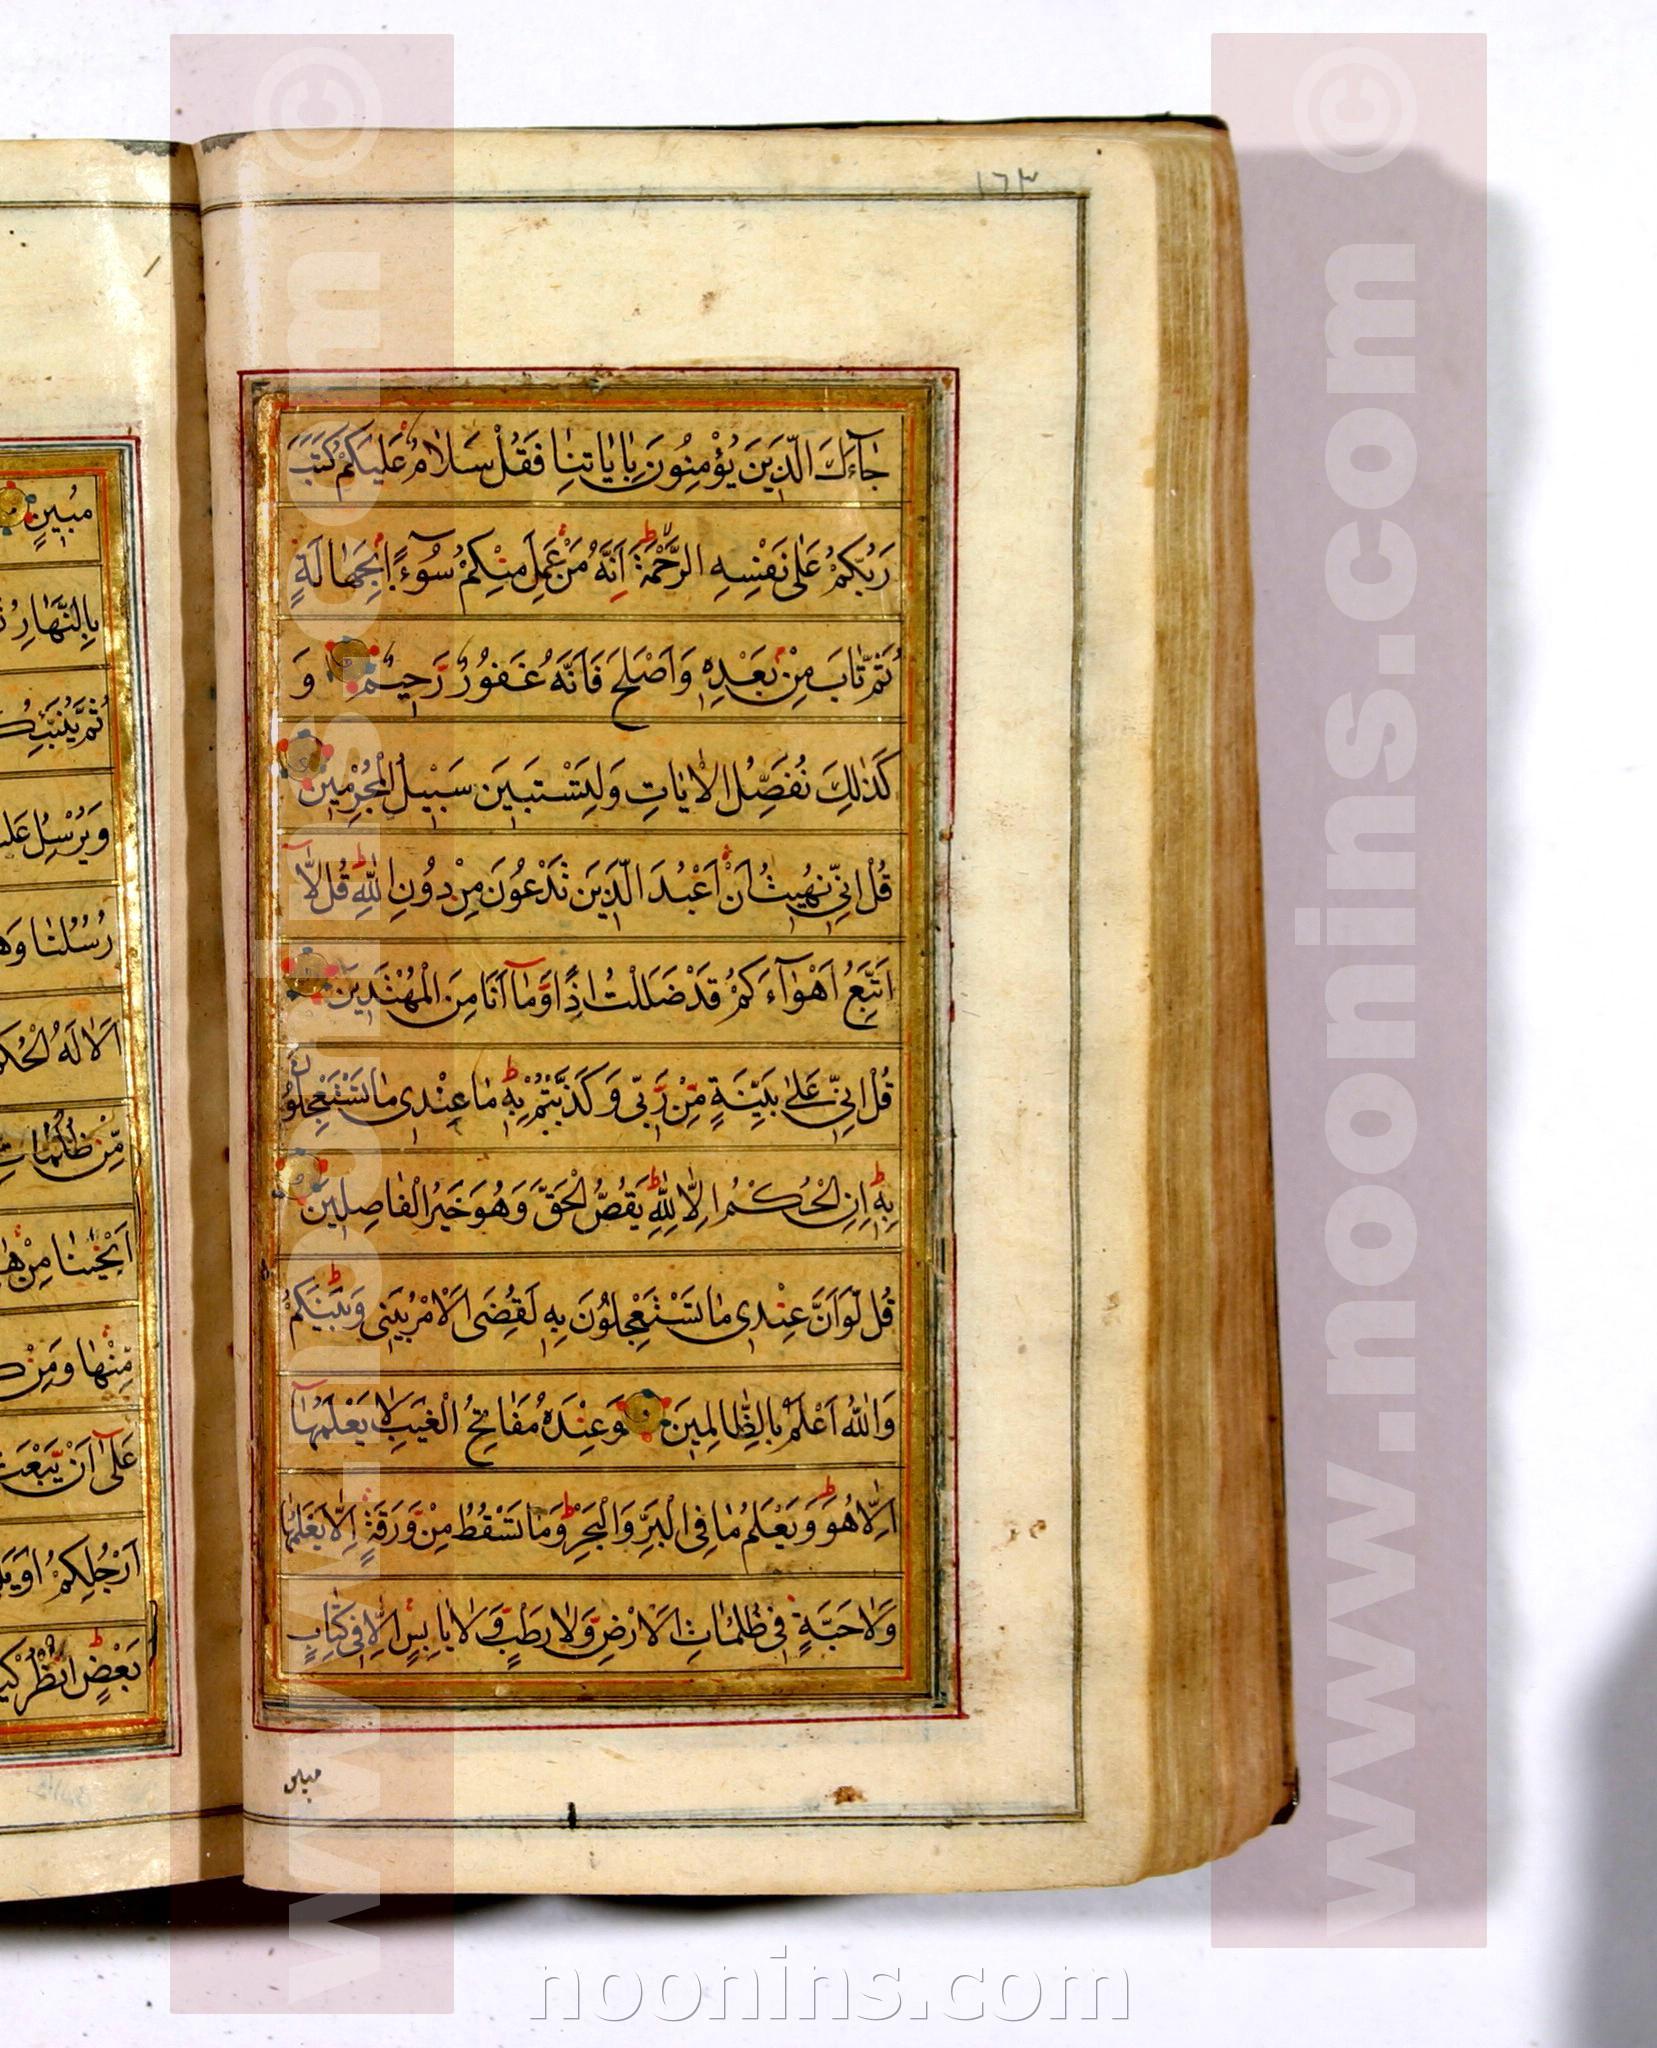 ١٦٣
جَآءَكَ الَّذِينَ يُؤْمِنُونَ بِاٰيَاتِنَا فَقُلْ سَلَامٌ عَلَيْكُمْ كَتَبَ
رَبُّكُمْ عَلٰى نَفْسِهِ الرَّحْمَةَ اَنَّهُ مَنْ عَمِلَ مِنْكُمْ سُوٓءًا بِجَهَالَةٍ
ثُمَّ تَابَ مِنْ بَعْدِهِ وَاَصْلَحَ فَاَنَّهُ غَفُورٌ رَحِيمٌ وَ
كَذٰلِكَ نُفَصِّلُ الْاٰيَاتِ وَلِتَسْتَبِينَ سَبِيلُ الْمُجْرِمِينَ
قُلْ اِنِّى نُهِيتُ اَنْ اَعْبُدَ الَّذِينَ تَدْعُونَ مِنْ دُونِ اللّٰهِ قُلْ لَآ
اَتَّبِعُ اَهْوَآءَكُمْ قَدْ ضَلَلْتُ اِذًا وَمَآ اَنَا مِنَ الْمُهْتَدِينَ
قُلْ اِنِّى عَلٰى بَيِّنَةٍ مِنْ رَبِّى وَكَذَّبْتُمْ بِهِ مَا عِنْدِى مَا تَسْتَعْجِلُونَ
بِهِ اِنِ الْحُكْمُ اِلَّا لِلّٰهِ يَقُصُّ الْحَقَّ وَهُوَ خَيْرُ الْفَاصِلِينَ
قُلْ لَوْ اَنَّ عِنْدِى مَا تَسْتَعْجِلُونَ بِهِ لَقُضِىَ الْاَمْرُ بَيْنِى وَبَيْنَكُمْ
وَاللّٰهُ اَعْلَمُ بِالظَّالِمِينَ وَعِنْدَهُ مَفَاتِحُ الْغَيْبِ لَا يَعْلَمُهَآ
اِلَّا هُوَ وَيَعْلَمُ مَا فِى الْبَرِّ وَالْبَحْرِ وَمَا تَسْقُطُ مِنْ وَرَقَةٍ اِلَّا يَعْلَمُهَا
وَلَا حَبَّةٍ فِى ظُلُمَاتِ الْاَرْضِ وَلَا رَطْبٍ وَلَا يَابِسٍ اِلَّا فِى كِتَابٍ
مبين
مُبِينٍ
بِالنَّهَارِ
ثُمَّ يُنَبِّئُكُ
وَيُرْسِلُ عَلَي
رُسُلُنَا وَهُ
اَلَا لَهُ الْحُكْمُ
مِنْ ظُلُمَاتِ
اَنْجَيْنَا مِنْ هٰ
مِنْهَا وَمِنْ كُ
عَلٰٓى اَنْ يَبْعَثَ
اَرْجُلِكُمْ اَوْ يَلْ
بَعْضٍ اُنْظُرْ كَيْ
www.noonins.com ©
www.noonins.com ©
noonins.com